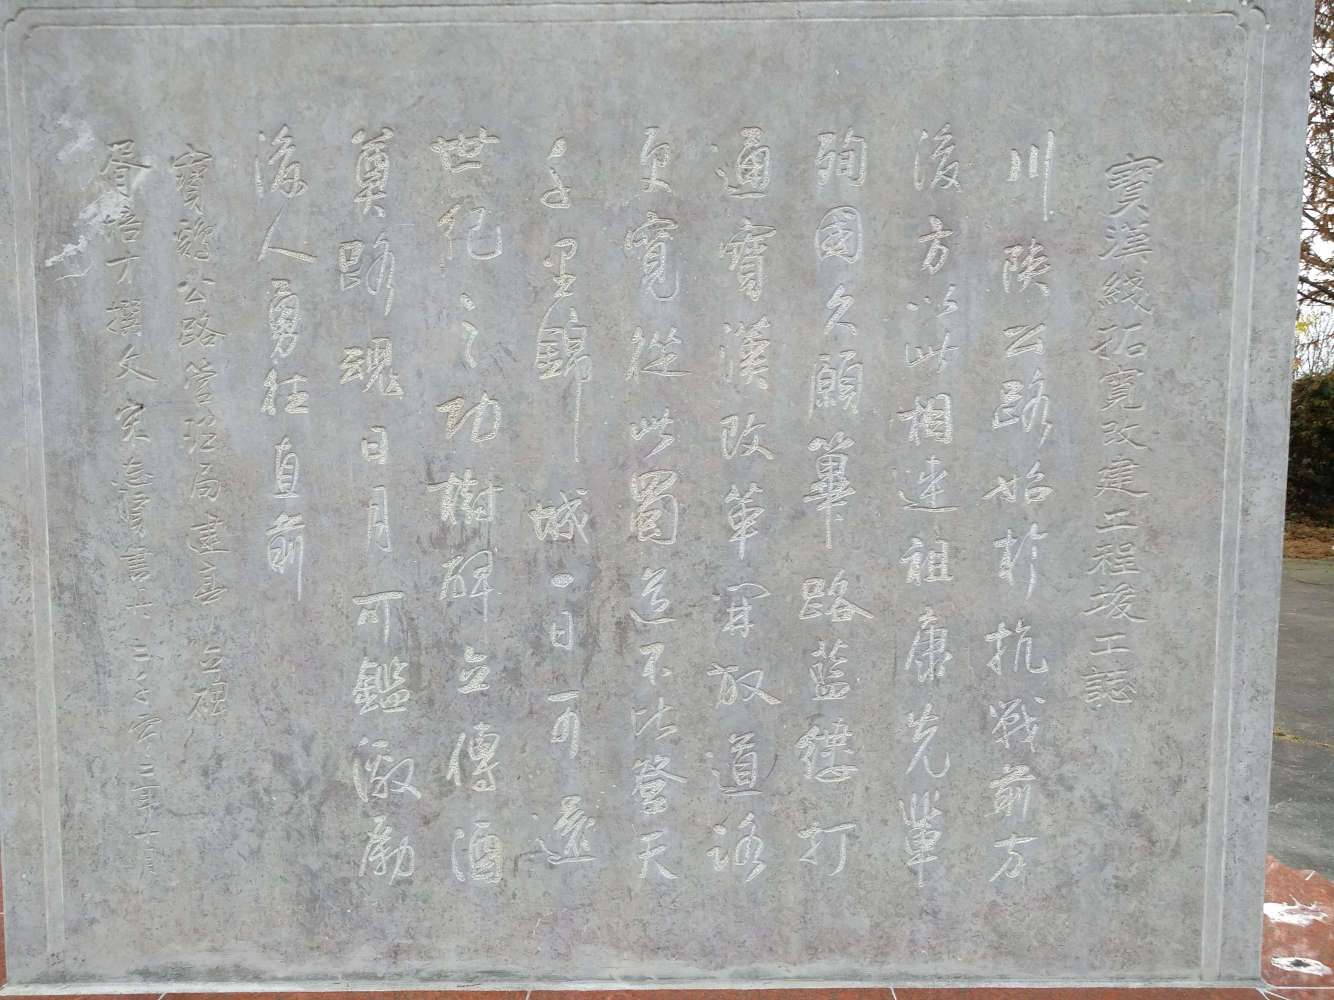 寶漢綫拓寬改建工程竣工誌
川陝公路始於抗戰前方
後方以此相連祖康先輩
殉國久願篳路藍縷打
通寶漢改革開放道路
更寬從此蜀道不比登天
千里錦城一日可還
世紀之功樹碑立傳酒
奠路魂日月可鑑激勵
後人勇往直前
寶鷄公路管理局建立 立碑
培才撰文宋 書 二〇〇二年十月